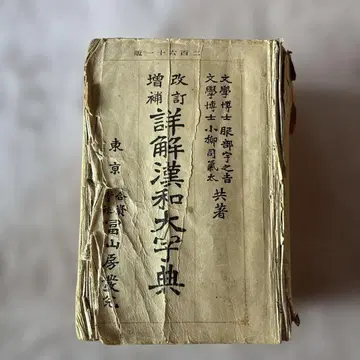 二百六十一版
文學博士 服部宇之吉
文學博士 小柳司氣太
共著
改訂
增補
詳解漢和大字典
東京
冨山房發兌